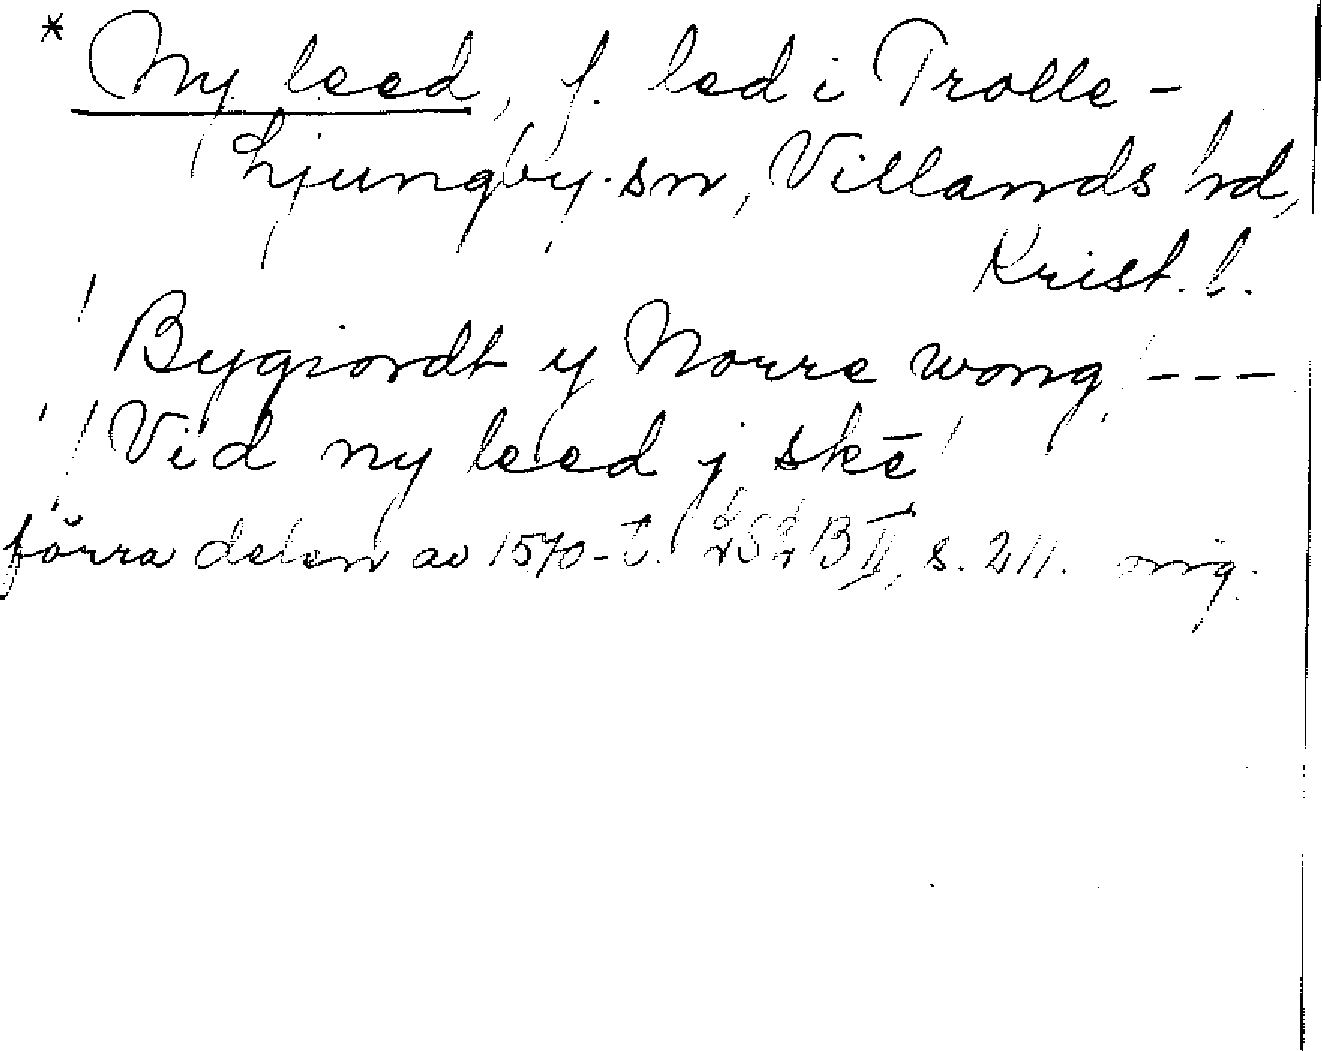 * Ny leed, f. led i Trolle-
Ljungby sn, Villands hd,
Krist. l.
' Bygiordt y Norre wong' ---
' 'Vid ny leed j skē'
förra delen av 1570-t. LSLB II, s. 211. orig.